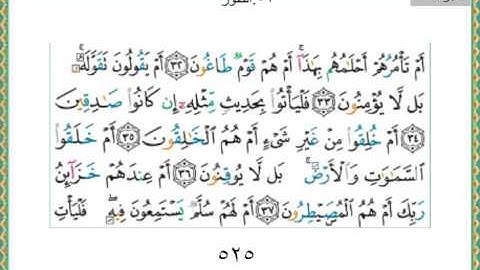 أَمْ تَأْمُرُهُمْ أَحْلَٰمُهُم بِهَٰذَآ ۚ أَمْ هُمْ قَوْمٌ طَاغُونَ ﴿٣٢﴾ أَمْ يَقُولُونَ تَقَوَّلَهُۥ ۚ
بَل لَّا يُؤْمِنُونَ ﴿٣٣﴾ فَلْيَأْتُوا۟ بِحَدِيثٍ مِّثْلِهِۦٓ إِن كَانُوا۟ صَٰدِقِينَ
﴿٣٤﴾ أَمْ خُلِقُوا۟ مِنْ غَيْرِ شَىْءٍ أَمْ هُمُ ٱلْخَٰلِقُونَ ﴿٣٥﴾ أَمْ خَلَقُوا۟
ٱلسَّمَٰوَٰتِ وَٱلْأَرْضَ ۚ بَل لَّا يُوقِنُونَ ﴿٣٦﴾ أَمْ عِندَهُمْ خَزَآئِنُ
رَبِّكَ أَمْ هُمُ ٱلْمُصَۣيْطِرُونَ ﴿٣٧﴾ أَمْ لَهُمْ سُلَّمٌ يَسْتَمِعُونَ فِيهِ ۖ فَلْيَأْتِ
٥٢٥